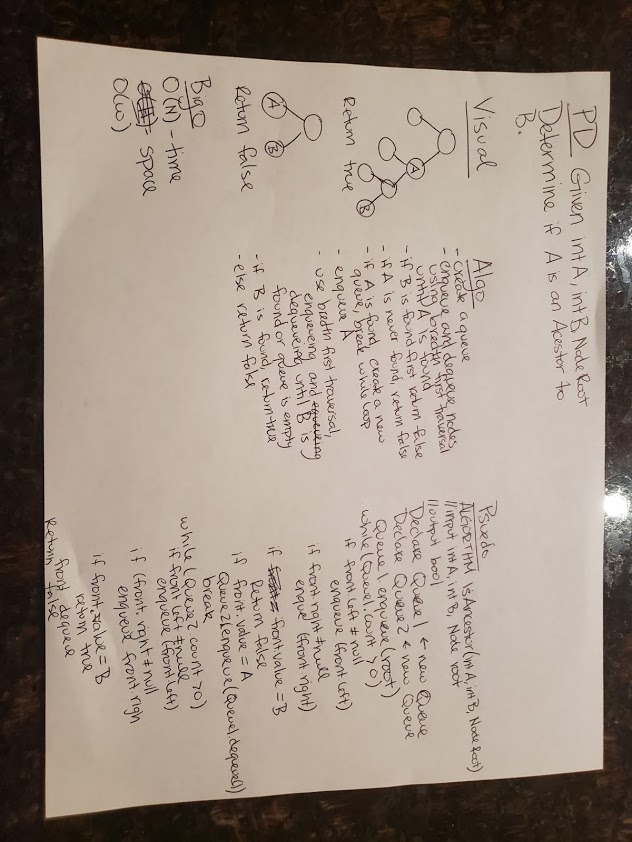 PD Given int A, int B, Node Root
Determine if A is an Acestor to
B.
Visual
A
B
Return true
A
B
Return false
Big O
O(N) - time
- space
O(w)
Algo
- create a queue
- enqueue and dequeue nodes
using bredth first traversal
until A is found
- if B is found first return false
- if A is never found, return false
- if A is found, create a new
queue, break while loop
- enqueue A
- use bredth first traversal,
enqueueing and
dequeueing until B is
found or queue is empty
- if B is found, return true
- else return false
Psuedo
ALGORTHM IsAncestor(int A, int B, Node Root)
//input int A, int B, Node root
//output bool
Declare Queue1 ← new Queue
Declare Queue2 ← new Queue
Queue1.enqueue(root)
while(Queue1.count >0)
if front.left ≠ null
enqueue (front.left)
if front.right ≠ null
enque (front.right)
if front.value = B
Return false
if front.value = A
Queue2.enqueue(Queue1.dequeue())
break
while(Queue2.count >0)
if front left ≠ null
enqueue (front left)
if (front. right ≠ null
enqueue front.righ
if front.value = B
return true
front dequeue
Return false